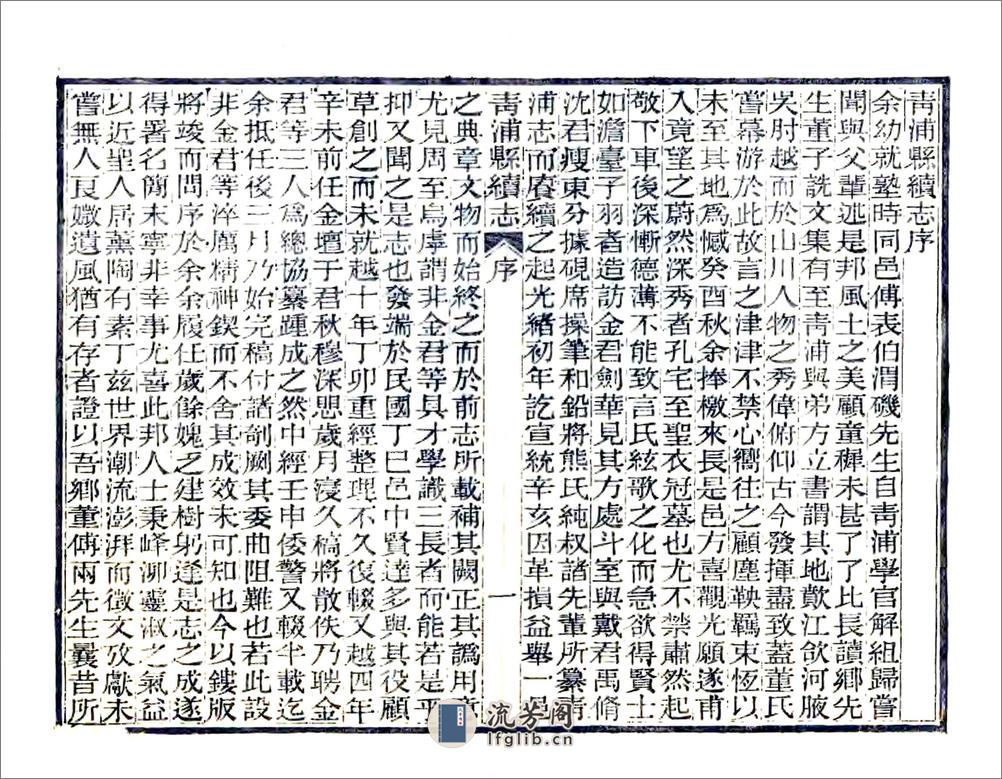 青浦縣續志序
余幼就塾時同邑傅表伯渭磯先生自青浦學官解組歸嘗
聞與父輩述是邦風土之美顧童穉未甚了了比長讀鄉先
生董子詵文集有至青浦與弟方立書謂其地歕江欱河腋
吳肘越而於山川人物之秀偉俯仰古今發揮盡致蓋董氏
嘗幕游於此故言之津津不禁心嚮往之顧塵鞅羈束恆以
未至其地爲憾癸酉秋余捧檄來長是邑方喜觀光願遂甫
入竟望之蔚然深秀者孔宅至聖衣冠墓也尤不禁肅然起
敬下車後深慚德薄不能致言氏絃歌之化而急欲得賢士
如澹臺子羽者造訪金君劍華見其方處斗室與戴君禹脩
沈君瘦東分據硯席操筆和鉛將熊氏純叔諸先輩所纂青
浦志而賡續之起光緒初年訖宣統辛亥因革損益舉一邑
青浦縣續志 序 一
之典章文物而始終之而於前志所載補其闕正其譌用意
尤見周至烏虖謂非金君等具才學識三長者而能若是乎
抑又聞之是志也發端於民國丁巳邑中賢達多與其役顧
草創之而未就越十年丁卯重經整理不久復輟又越四年
辛未前任金壇于君秋穆深思歲月寖久稿將散佚乃聘金
君等三人爲總協纂踵成之然中經壬申倭警又輟半載迄
余抵任後三月乃始完稿付諸剞劂其委曲阻難也若此設
非金君等淬厲精神鍥而不舍其成效未可知也今以鏤版
將竣而問序於余余履任歲餘媿乏建樹躬逢是志之成遂
得署名簡末寧非幸事尤喜此邦人士秉峰泖靈淑之氣益
以近聖人居薰陶有素丁茲世界潮流澎湃而徵文攷獻未
嘗無人良媺遺風猶有存者證以吾鄉董傅兩先生曩昔所
流芳阁
lfglib.cn